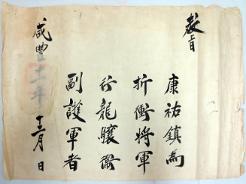 敎旨
康祐鎮爲
折衝將軍
行龍驤衛
副護軍者
咸豐十一年十二月 日